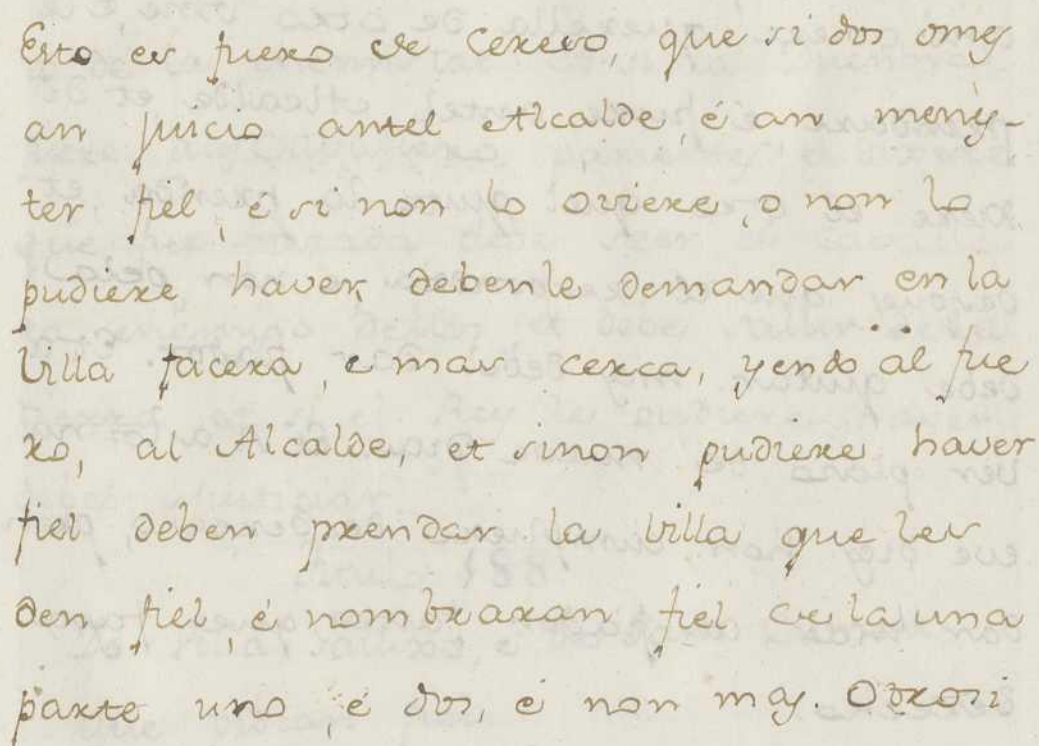 Esto es fuero de Cereso, que si dos omes
an juicio antel Alcalde, é an menes-
ter fiel, é si non lo oviere, o non lo
pudiere haver, debenle demandar en la
Villa facera, e mas cerca, yendo al fue
ro, al Alcalde, et sinon pudiere haver
fiel deben prendar la Villa que les
den fiel, é nombraran fiel de la una
parte uno, é dos, é non mas. Otrosi